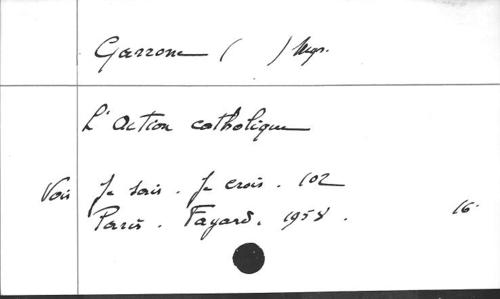 Garrone ( ) Mgr.
L'Action catholique
Voir Je sais. Je crois. 102
Paris. Fayard. 1958. 16